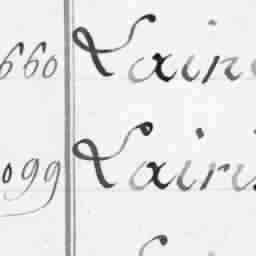 660 Laine
099 Lairi